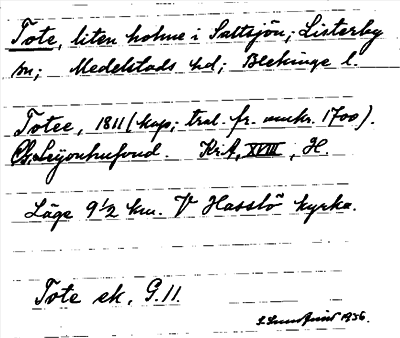 Tote, liten holme i Saltsjön; Listerby
sn; Medelstads hd; Blekinge l.
Totee, 1811 (kop; trol. fr. omkr. 1700).
Leijonhufvud. Kr. A, XVIII, H.
Läge 9 1/2 km. V Hasslö kyrka.
Tote ek. G. 11.
S. Lundqvist 1936.